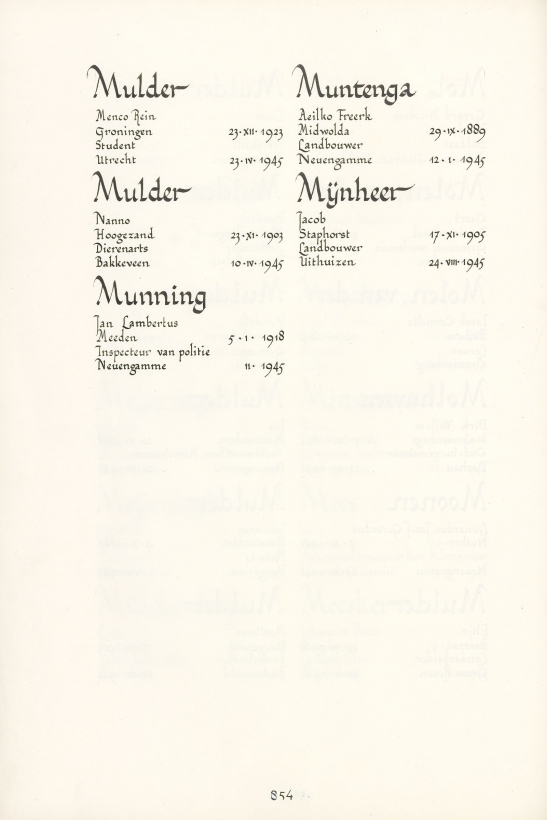 Mulder
Menco Rein
Groningen 23·XII· 1923
Student
Utrecht 23·IV· 1945
Mulder
Nanno
Hoogezand 23·XI· 1903
Dierenarts
Bakkeveen 10·IV· 1945
Munning
Jan Lambertus
Meeden 5·1· 1918
Inspecteur van politie
Neuengamme 11· 1945
Muntenga
Aeilko Freerk
Midwolda 29·IX·1889
Landbouwer
Neuengamme 12·1· 1945
Mijnheer
Jacob
Staphorst 17·XI· 1905
Landbouwer
Uithuizen 24·VIII·1945
854